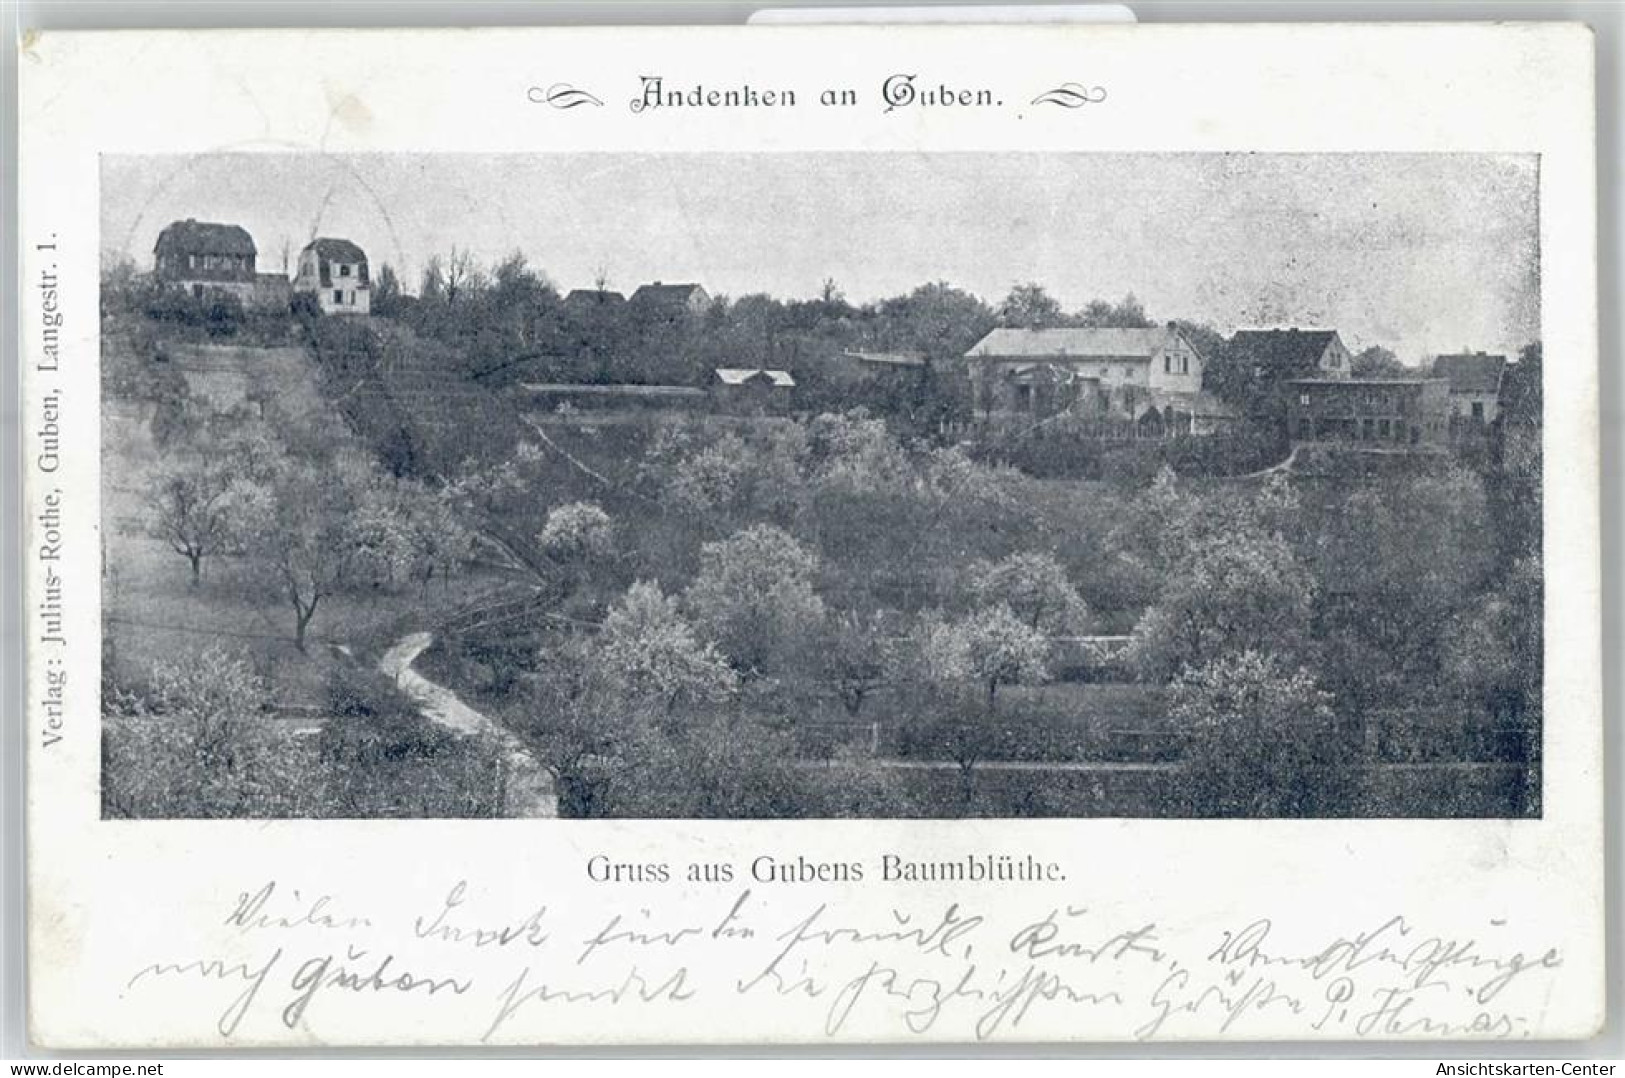 Andenken an Guben.
Verlag: Julius-Rothe, Guben, Langestr. 1.
Gruss aus Gubens Baumblüthe.
Vielen Dank für die freudl. Karte. Vom Ausfluge
nach Guben sendet die herzlichsten Grüße P.
www.ak-ansichtskarten.de
Ansichtskarten-Center